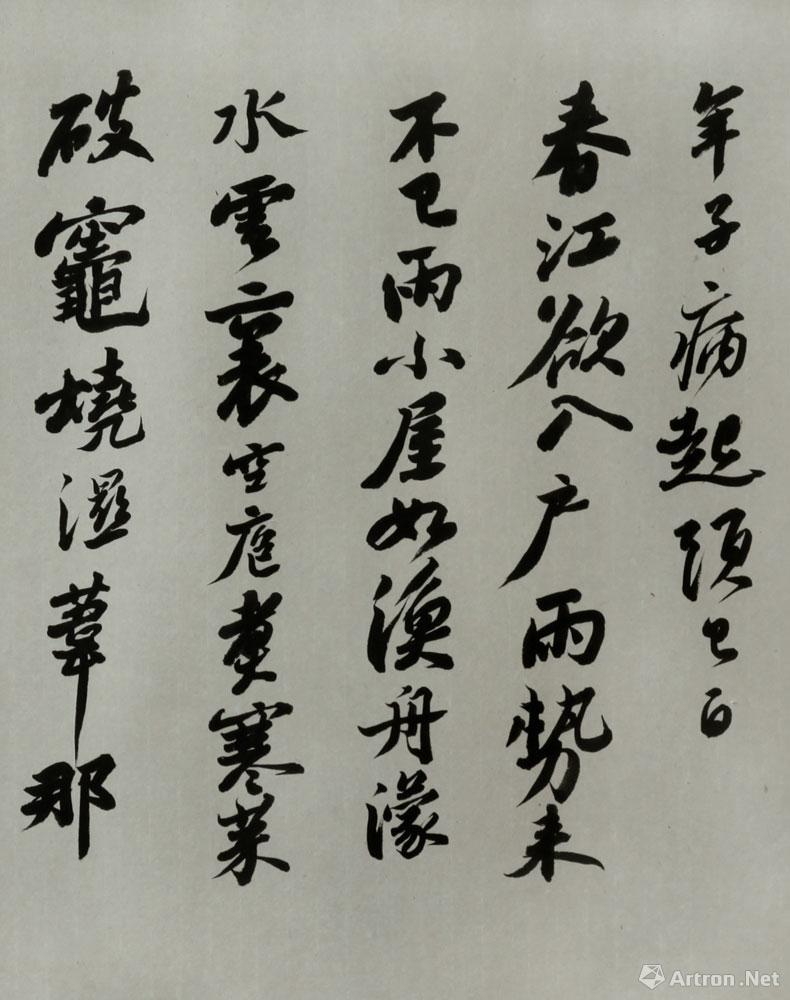 年子病起頭已白
春江欲入户雨勢来
不已雨小屋如漁舟濛
水雲裏空庖煮寒菜
破竈燒濕葦那
Artron.Net